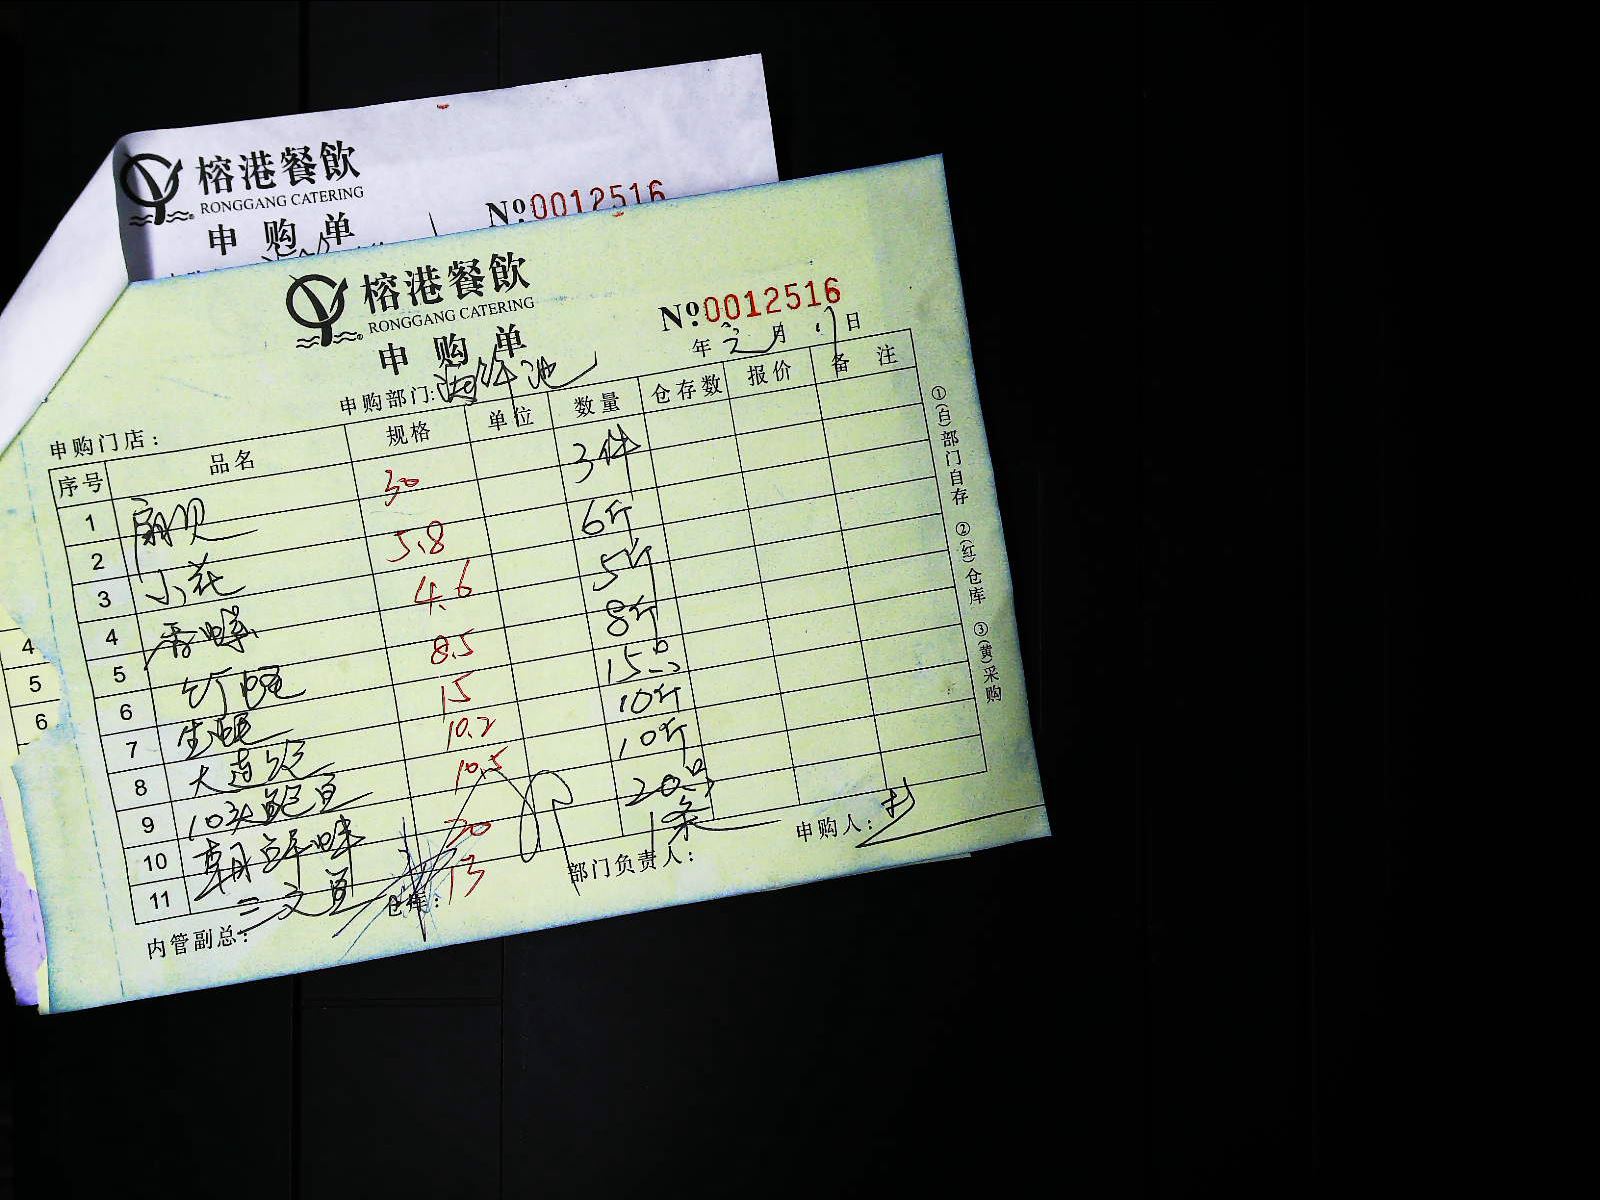 榕港餐飲
RONGGANG CATERING
申购单
№0012516
榕港餐飲
RONGGANG CATERING
申购单
№0012516
年 月 日
申购部门:海鲜池
申购门店:
序号 品名 规格 单位 数量 仓存数 报价 备注
1 扇贝 30 3件
2 小花 5.8 6斤
3 香螺 4.6 5斤
4 竹蛏 8.5 8斤
5 生蚝 15 15只
6 大连鲍 10.2 10斤
7 10头鲍鱼 10.5 10斤
8 朝鲜蚌 20 20只
9 三文鱼 13 1条
10
11
内管副总:
仓库:
部门负责人:
申购人:
①(白)部门自存 ②(红)仓库 ③(黄)采购
4
5
6